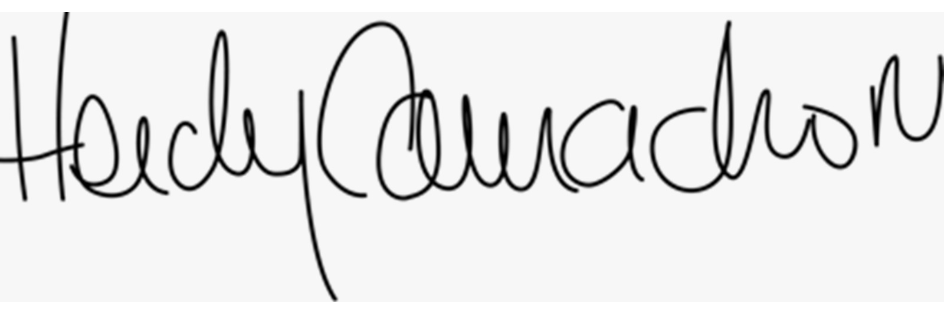 Heidy Camacho M